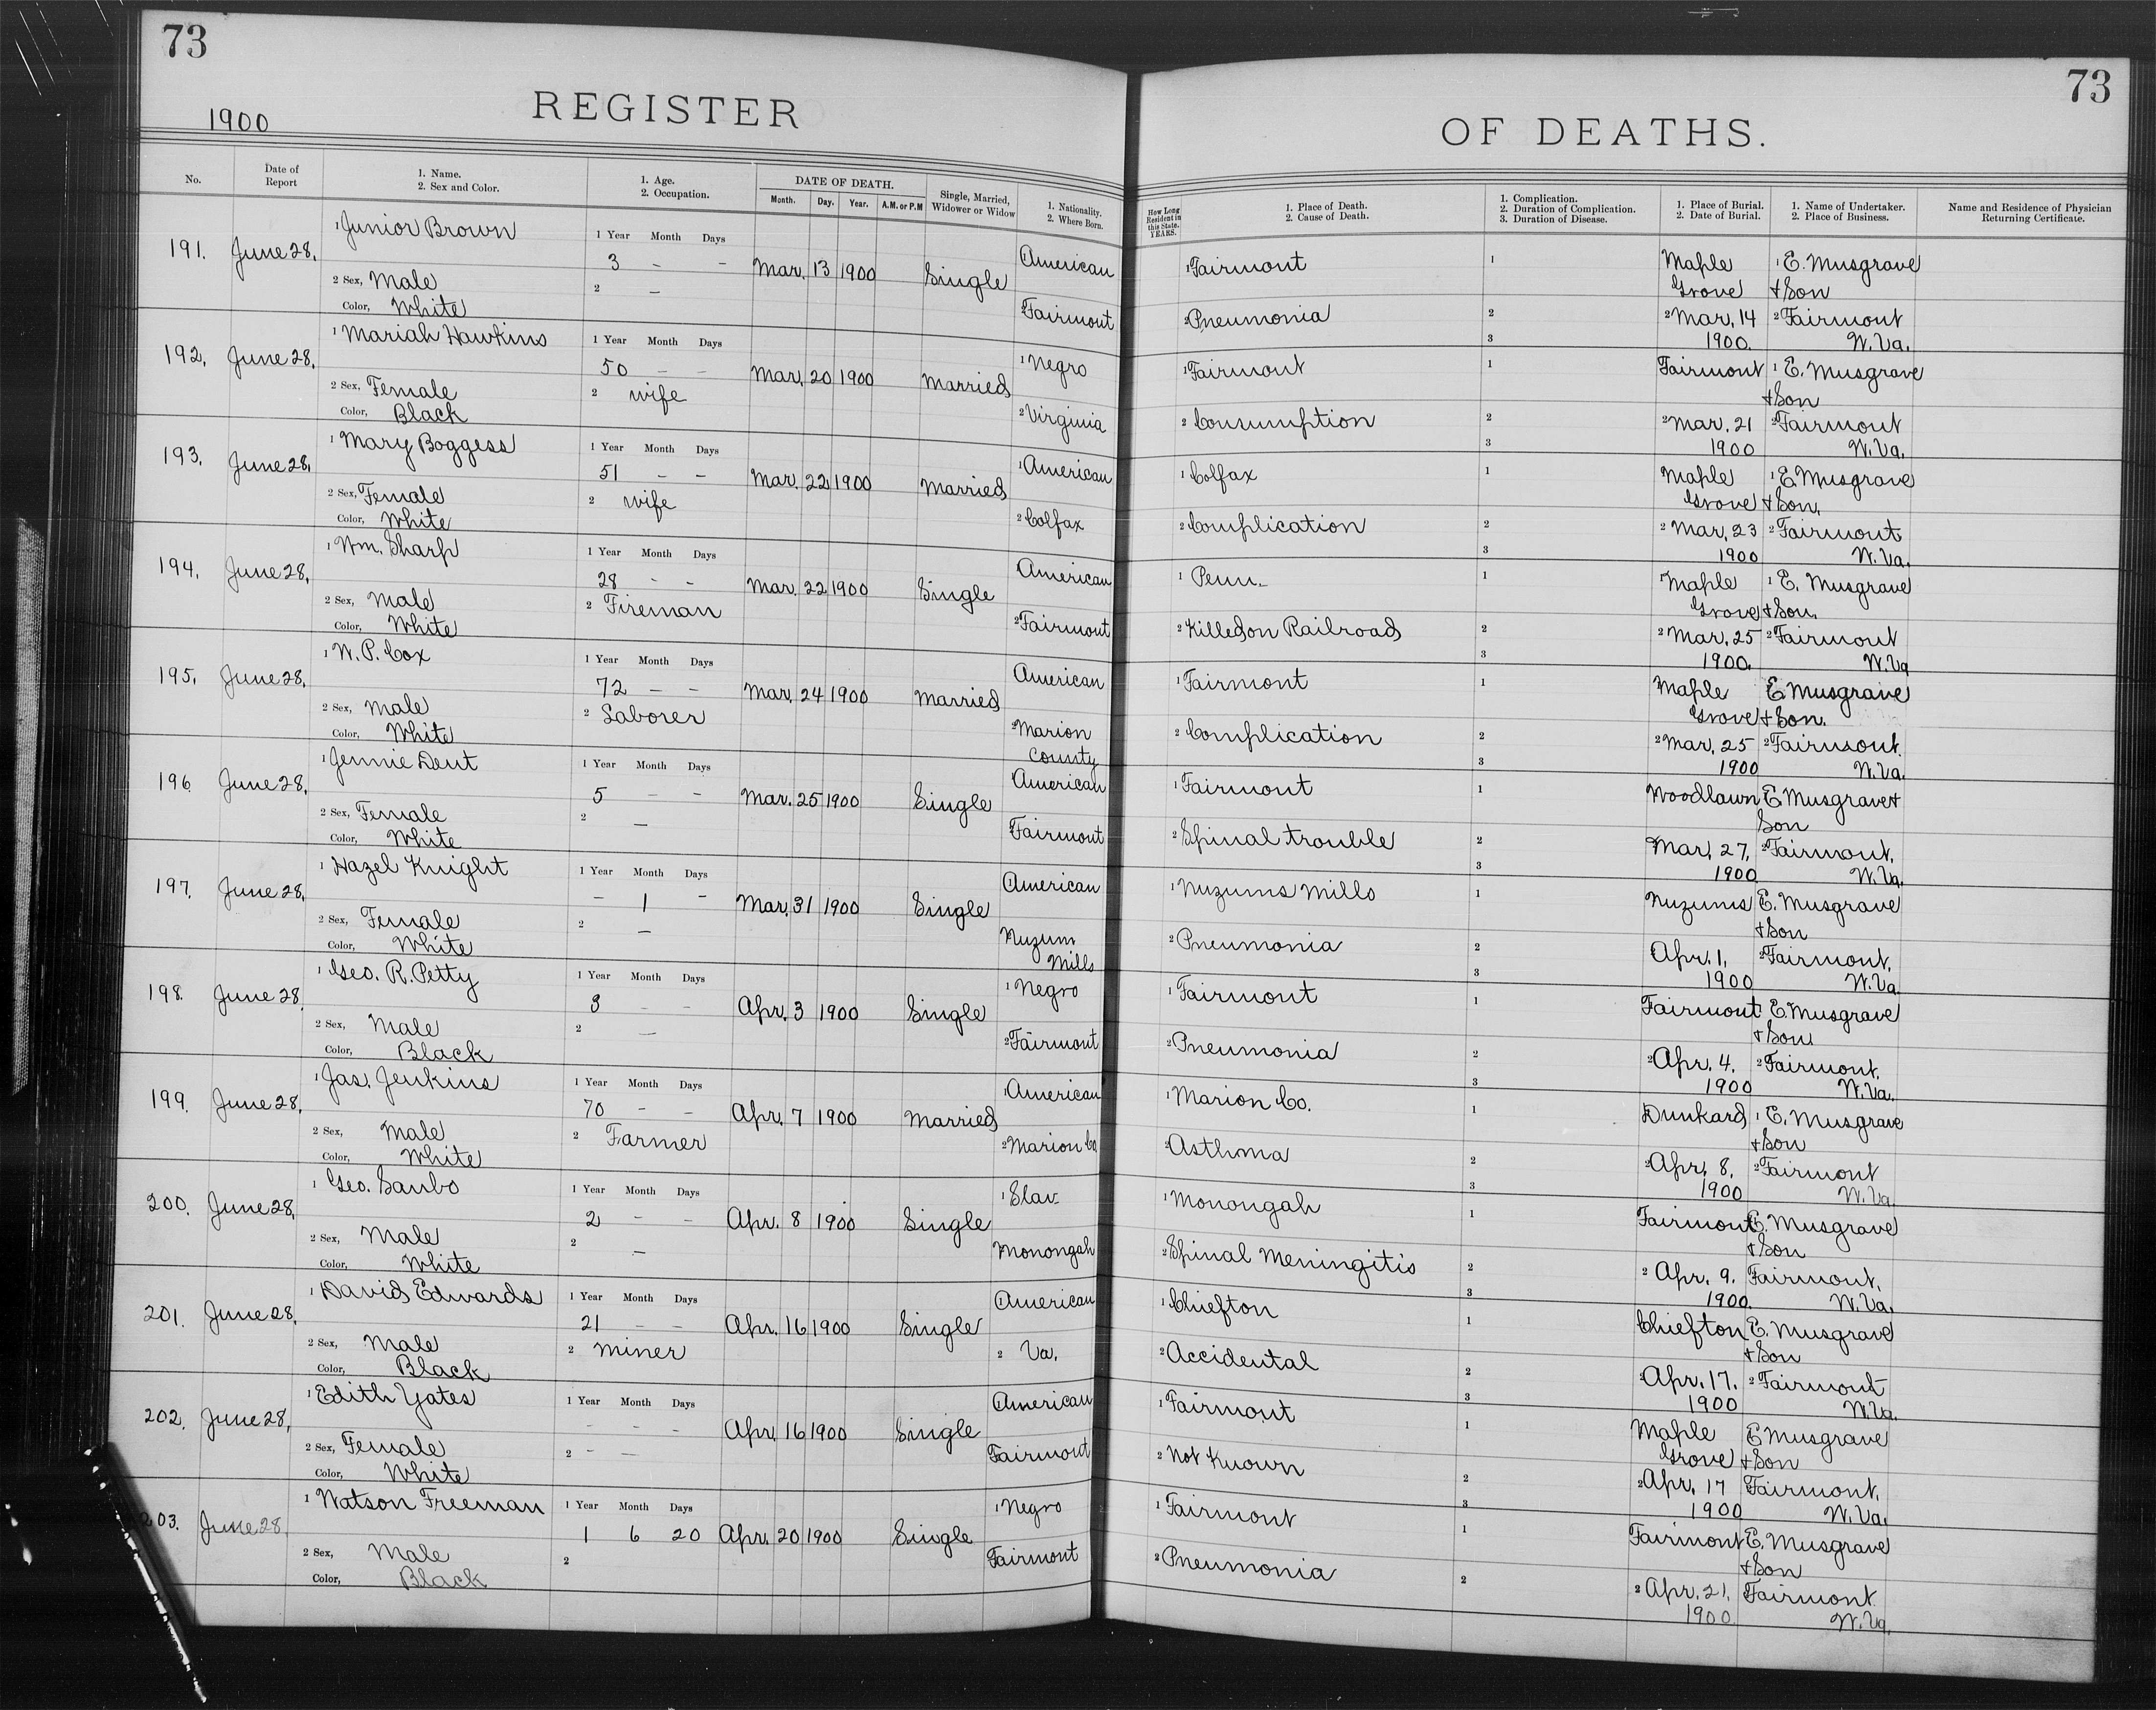 73
1900
REGISTER
No.
Date of Report
1. Name.
2. Sex and Color.
1. Age.
2. Occupation.
DATE OF DEATH.
Month. Day. Year. A.M. or P.M
Single, Married, Widower or Widow
1. Nationality.
2. Where Born.
73
OF DEATHS.
How Long Resident in this State. YEARS.
1. Place of Death.
2. Cause of Death.
1. Complication.
2. Duration of Complication.
3. Duration of Disease.
1. Place of Burial.
2. Date of Burial.
1. Name of Undertaker.
2. Place of Business.
Name and Residence of Physician Returning Certificate.
191. June 28, 1 Junior Brown 1 Year Month Days American 1 Fairmont 1 Maple 1 E. Musgrave
3 - - Mar. 13 1900 Single Grove & Son
2 Sex, Male 2 - Fairmont 2 Pneumonia 2 2 Mar, 14 2 Fairmont
Color, White 3 1900. W. Va.
192, June 28, 1 Mariah Hawkins 1 Year Month Days 1 Negro 1 Fairmont 1 Fairmont 1 E. Musgrave
50 - - Mar. 20 1900 Married & Son
2 Sex, Female 2 wife 2 Virginia 2 Consumption 2 2 Mar. 21 2 Fairmont
Color, Black 3 1900 W. Va.
193, June 28, 1 Mary Boggess 1 Year Month Days 1 American 1 Colfax 1 Maple 1 E. Musgrave
51 - - Mar. 22 1900 Married Grove & Son,
2 Sex, Female 2 wife 2 Colfax 2 Complication 2 2 Mar, 23 2 Fairmont
Color, White 3 1900 W. Va.
194, June 28, 1 Wm. Sharp 1 Year Month Days American 1 Penn. 1 Maple 1 E. Musgrave
28 - - Mar. 22 1900 Single Grove & Son.
2 Sex, Male 2 Fireman 2 Fairmont 2 Killed on Railroad 2 2 Mar. 25 2 Fairmont
Color, White 3 1900. W. Va
195, June 28, 1 W. P. Cox 1 Year Month Days American 1 Fairmont 1 Maple E. Musgrave
72 - - Mar. 24 1900 Married Grove & Son.
2 Sex, Male 2 Laborer 2 Marion County 2 Complication 2 2 Mar. 25 2 Fairmont.
Color, White 3 1900 W. Va.
196 June 28, 1 Jennie Dent 1 Year Month Days American 1 Fairmont 1 Woodlawn E. Musgrave &
5 - - Mar. 25 1900 Single Son
2 Sex, Female 2 - Fairmont 2 Spinal trouble 2 Mar, 27, 2 Fairmont,
Color, White 3 1900 W. Va.
197. June 28, 1 Hazel Knight 1 Year Month Days American 1 Nuzums Mills 1 Nuzums E. Musgrave
- 1 - Mar. 31 1900 Single & Son
2 Sex, Female 2 - Nuzum Mills 2 Pneumonia 2 Apr. 1, 2 Fairmont,
Color, White 3 1900 W. Va.
198. June 28, 1 Geo. R. Petty 1 Year Month Days 1 Negro 1 Fairmont 1 Fairmont E. Musgrave
3 - - Apr. 3 1900 Single & Son
2 Sex, Male 2 - 2 Fairmont 2 Pneumonia 2 2 Apr. 4. 2 Fairmont.
Color, Black 3 1900 W. Va.
199. June 28, 1 Jas. Jenkins 1 Year Month Days American 1 Marion Co. 1 Dunkard 1 E. Musgrave
70 - - Apr. 7 1900 Married & Son
2 Sex, Male 2 Farmer 2 Marion Co 2 Asthma 2 2 Apr. 8, 2 Fairmont
Color, White 3 1900 W. Va
200. June 28, 1 Geo. Sanbo 1 Year Month Days 1 Slav 1 Monongah 1 Fairmont E. Musgrave
2 - - Apr. 8 1900 Single & Son
2 Sex, Male 2 - Monongah 2 Spinal Meningitis 2 2 Apr. 9. Fairmont,
Color, White 3 1900. W. Va.
201. June 28, 1 David Edwards 1 Year Month Days American 1 Chiefton 1 Chiefton E. Musgrave
21 - - Apr. 16 1900 Single & Son
2 Sex, Male 2 miner 2 Va. 2 Accidental 2 2 Apr. 17. 2 Fairmont
Color, Black 3 1900 W. Va.
202. June 28, 1 Edith Yates 1 Year Month Days American 1 Fairmont 1 Maple E Musgrave
- - - Apr. 16 1900 Single Grove & Son
2 Sex, Female 2 - Fairmont 2 Not Known 2 2 Apr. 17 Fairmont,
Color, White 3 1900 W. Va.
203. June 28, 1 Watson Freeman 1 Year Month Days 1 Negro 1 Fairmont 1 Fairmont E. Musgrave
1 6 20 Apr. 20 1900 Single & Son
2 Sex, Male 2 Fairmont 2 Pneumonia 2 2 Apr. 21, Fairmont
Color, Black 1900 W. Va.